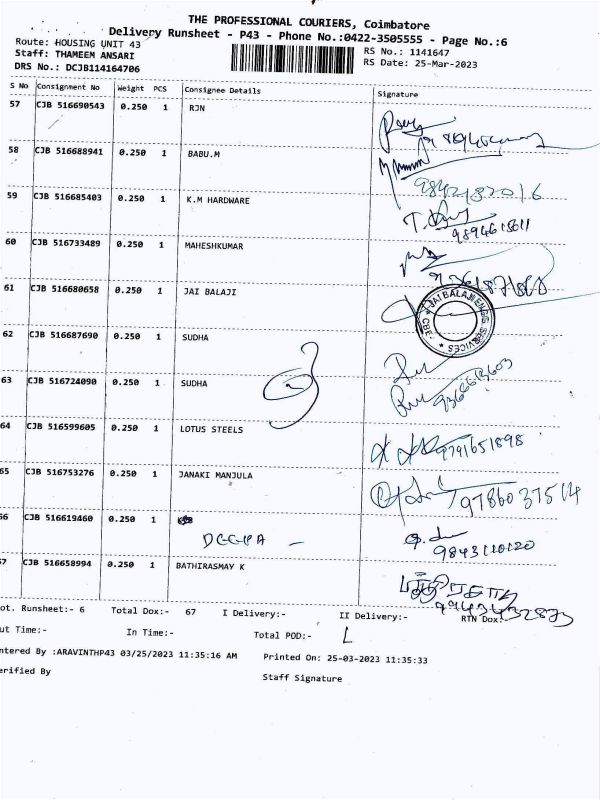 THE PROFESSIONAL COURIERS, Coimbatore
Delivery Runsheet - P43 - Phone No.:0422-3505555 - Page No.:6
Route: HOUSING UNIT 43
RS No.: 1141647
Staff: THAMEEM ANSARI
RS Date: 25-Mar-2023
DRS No.: DCJB114164706
S No Consignment No Weight PCS Consignee Details Signature
57 CJB 516690543 0.250 1 RJN
58 CJB 516688941 0.250 1 BABU.M
59 CJB 516685403 0.250 1 K.M HARDWARE
9894615611
60 CJB 516733489 0.250 1 MAHESHKUMAR
61 CJB 516680658 0.250 1 JAI BALAJI
JAI BALAJI ENGG SERVICES * CBE. *
62 CJB 516687690 0.250 1 SUDHA
63 CJB 516724090 0.250 1 SUDHA
64 CJB 516599605 0.250 1 LOTUS STEELS
9791651898
65 CJB 516753276 0.250 1 JANAKI MANJULA
9786037514
66 CJB 516619460 0.250 1
DEEPA -
9843110120
57 CJB 516658994 0.250 1 BATHIRASMAY K
9943432873
ot. Runsheet:- 6 Total Dox:- 67 I Delivery:- II Delivery:- RTN Dox:
ut Time:- In Time:- Total POD:- L
ntered By :ARAVINTHP43 03/25/2023 11:35:16 AM Printed On: 25-03-2023 11:35:33
erified By Staff Signature